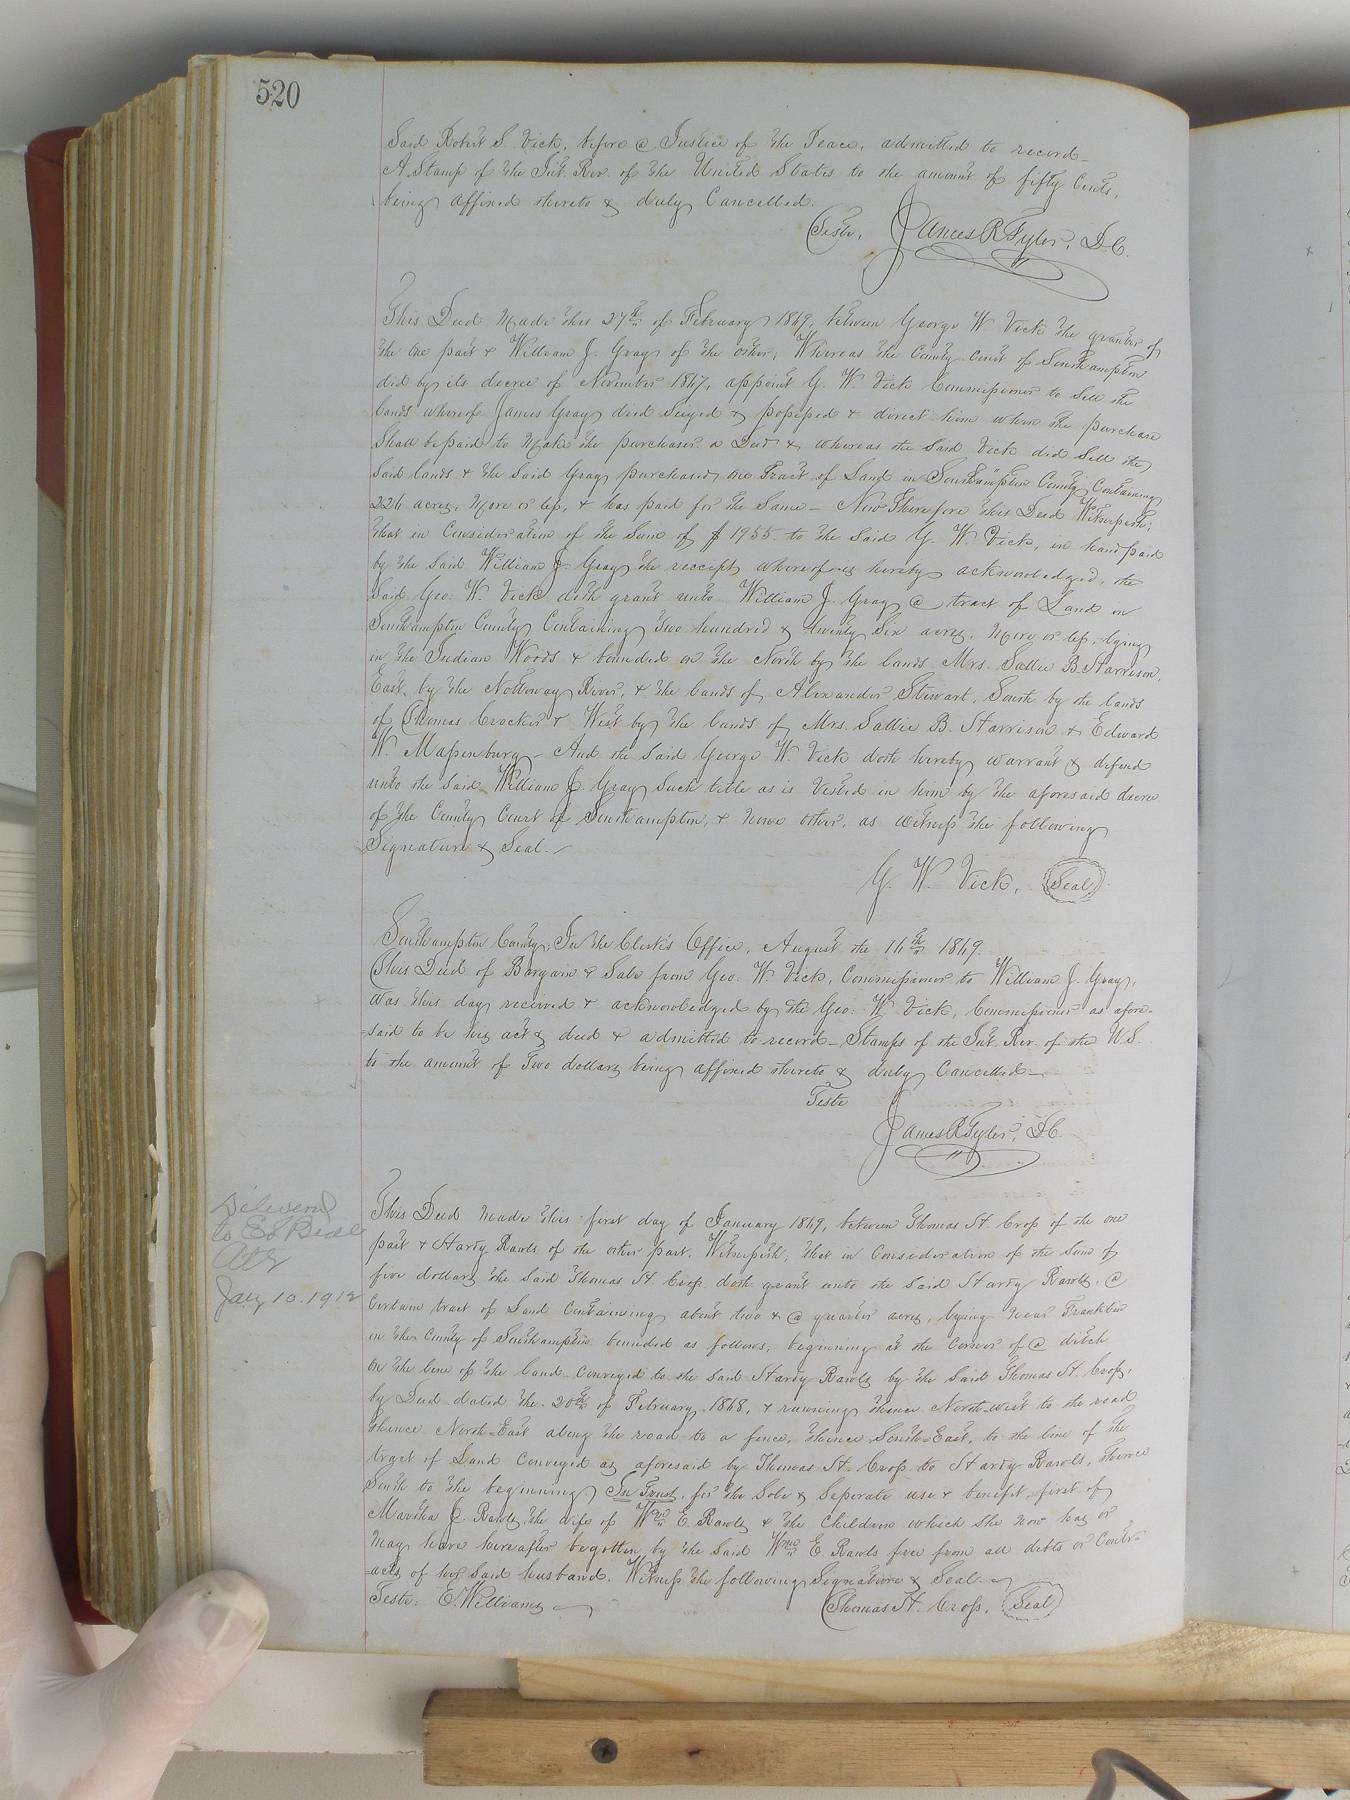 520
Said Robert S. Vick, before a Justice of the Peace, admitted to record_
A Stamp of the Int. Rev. of the United States to the amount of fifty Cents,
being affixed thereto & duly Cancelled.
Teste, James R Tyler, D.C.
This Deed Made this 27th of February 1869, between George W Vick the grantor of
the one part & William J. Gray of the other, Whereas the County Court of Southampton
did by its decree of November 1867, appoint G. W. Vick Commissioner to Sell the
lands whereof James Gray died Seized & possessed & direct him when the purchase
Shall be paid to Make the purchaser a Deed &, whereas the Said Vick did Sell the
Said lands & the Said Gray purchased, one Tract of Land in Southampton County Containing
226 acres, More or less, & has paid for the Same_ Now Therefore this Deed Witnesseth;
that in Consideration of the Sum of $1955. to the Said G. W. Vick, in hand paid
by the Said William J. Gray the receipt, whereof is hereby acknowledged, the
Said Geo: W. Vick doth grant unto William J. Gray a tract of Land in
Southampton County Containing Two hundred & twenty Six acres, More or less, lying
in the Indian Woods & bounded on the North by the lands Mrs. Sallie B. Harrison,
East, by the Nottoway River, & the lands of Alexander Stewart, South by the lands
of Thomas Crocker & West by the lands of Mrs. Sallie B. Harrison & Edward
W. Massenburg_ And the Said George W. Vick doth hereby warrant & defend
unto the Said William J. Gray Such title as is Vested in him by the aforesaid decree
of the County Court of Southampton, & none other, as witness the following
Signature & Seal._
G. W. Vick, (Seal)
Southampton County; In the Clerk's Office, August the 16th 1869.
This Deed of Bargain & Sale from Geo. W. Vick, Commissioner to William J. Gray,
was this day received & acknowledged by the Geo: W. Vick, Commissioner as afore-
=said to be his act & deed & admitted to record_ Stamps of the Int. Rev. of the U.S.
to the amount of Two dollars being affixed thereto & duly Cancelled_
Teste
James R Tyler, D.C.
Delivered
to
Atty
Jany 10. 1912
This Deed made this first day of January 1869, between Thomas H. Cross of the one
part & Hardy Rawls of the other part, Witnesseth; that in Consideration of the Sum of
five dollars the Said Thomas H. Cross doth grant unto the Said Hardy Rawls, a
Certain tract of Land Containing about two & a quarter acres, lying near Franklin
in the County of Southampton bounded as follows, beginning at the Corner of a ditch
on the line of the land Conveyed to the Said Hardy Rawls by the Said Thomas H. Cross,
by Deed dated the 20th of February 1868, & running thence North-west to the road
thence North=East along the road to a fence, thence South=East, to the line of the
tract of Land Conveyed as aforesaid by Thomas H. Cross to Hardy Rawls, thence
South to the beginning, In Trust, for the Sole & Seperate use & benefit, first of
Martha J. Rawls, the wife of Wm E. Rawls & the Children which She now has or
may have hereafter begotten by the Said Wm E. Rawls free from all debts or Contr-
=acts of her Said husband. Witness the following Signature & Seal._
Teste. E. Williams Thomas H. Cross, (Seal)